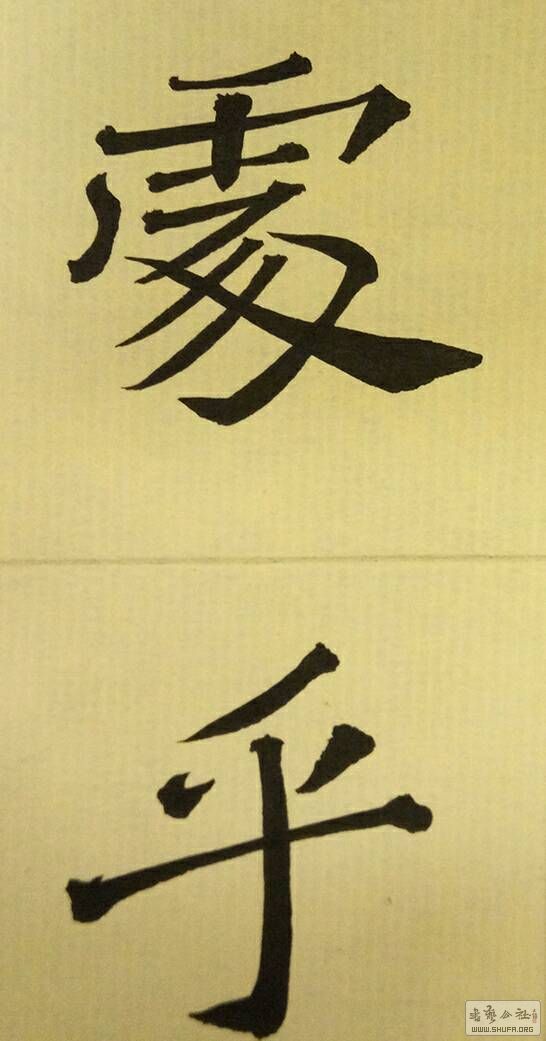 處
乎
書藝公社
WWW.SHUFA.ORG